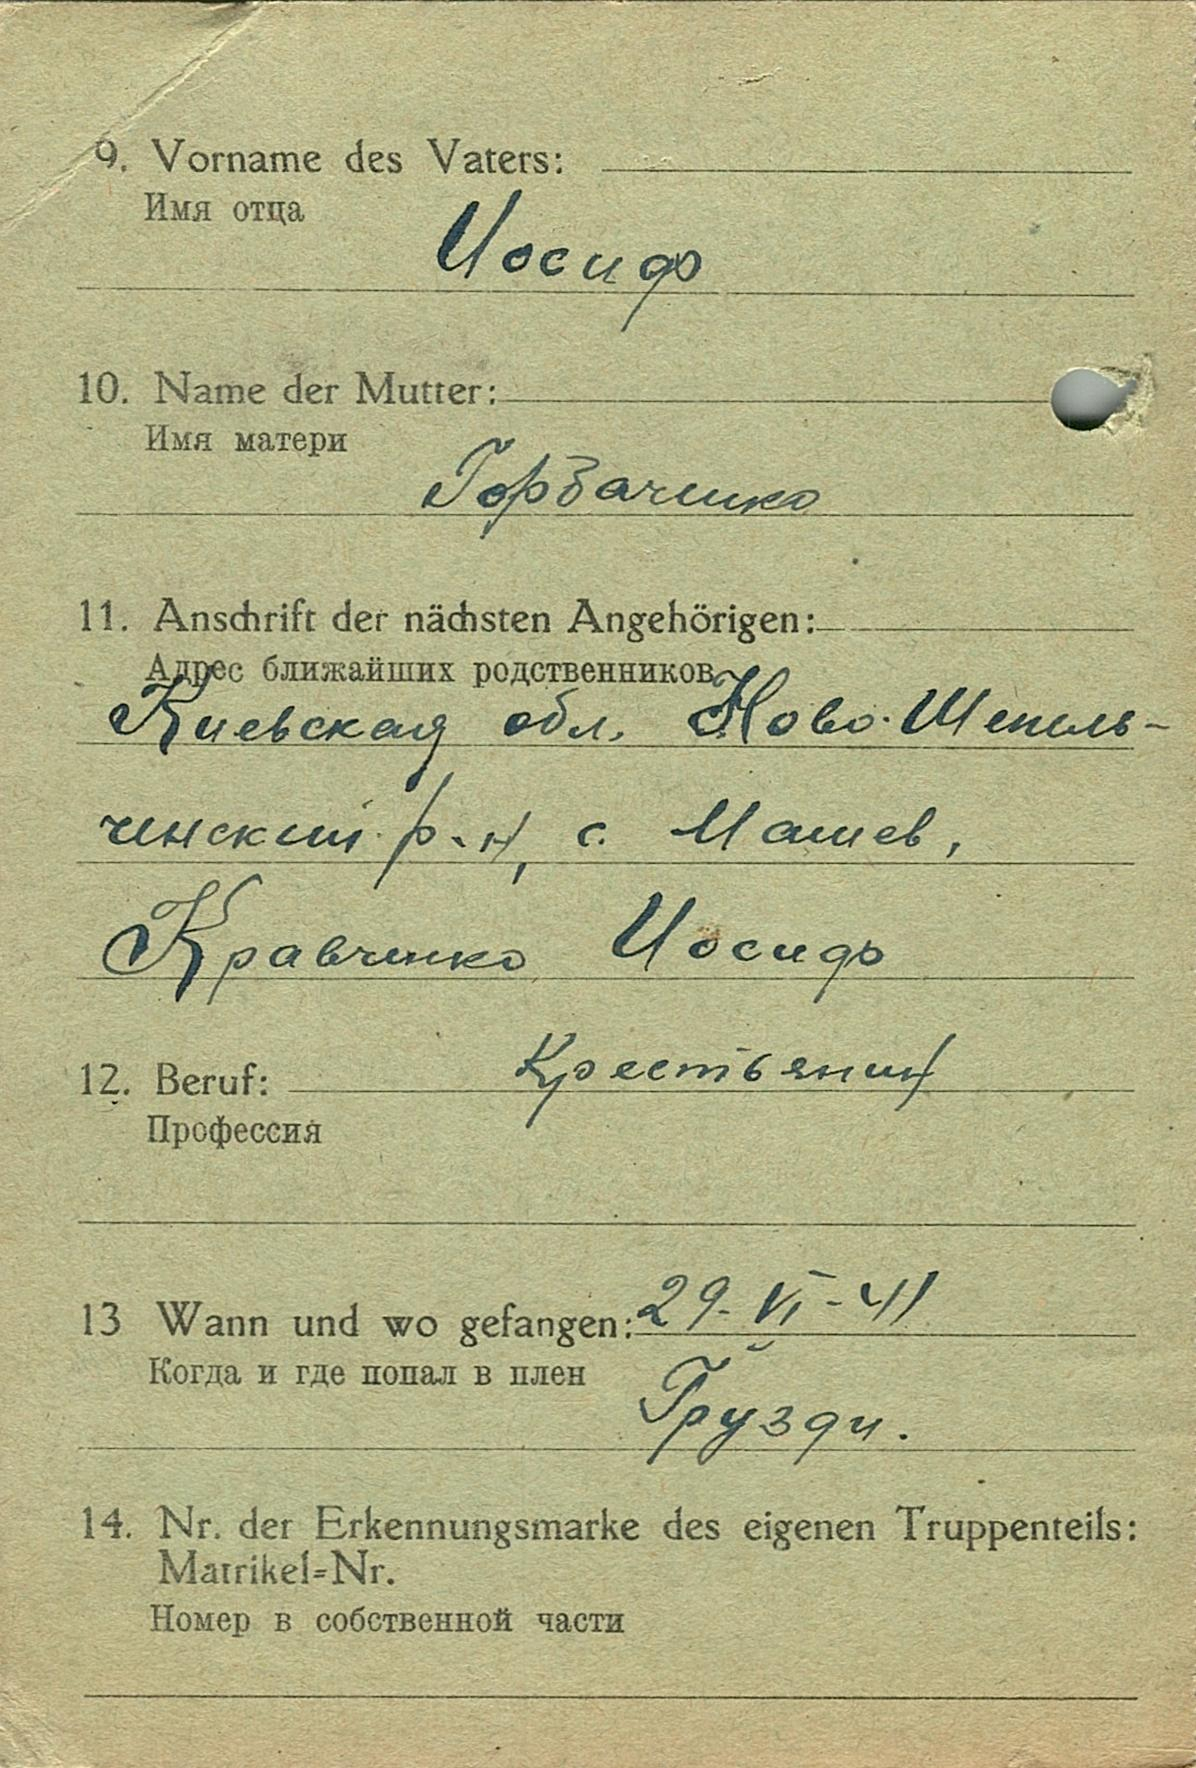 9. Vorname des Vaters:
Имя отца
Иосиф
10. Name der Mutter:
Имя матери
Горбаченко
11. Anschrift der nächsten Angehörigen:
Адрес ближайших родственников
Киевская обл. Ново-Шепель-
ченский р-н, с. Машев,
Кравченко Иосиф
12. Beruf: Крестьянин
Профессия
13 Wann und wo gefangen: 29-VI-41
Когда и где попал в плен
Грузди.
14. Nr. der Erkennungsmarke des eigenen Truppenteils:
Matrikel=Nr.
Номер в собственной части